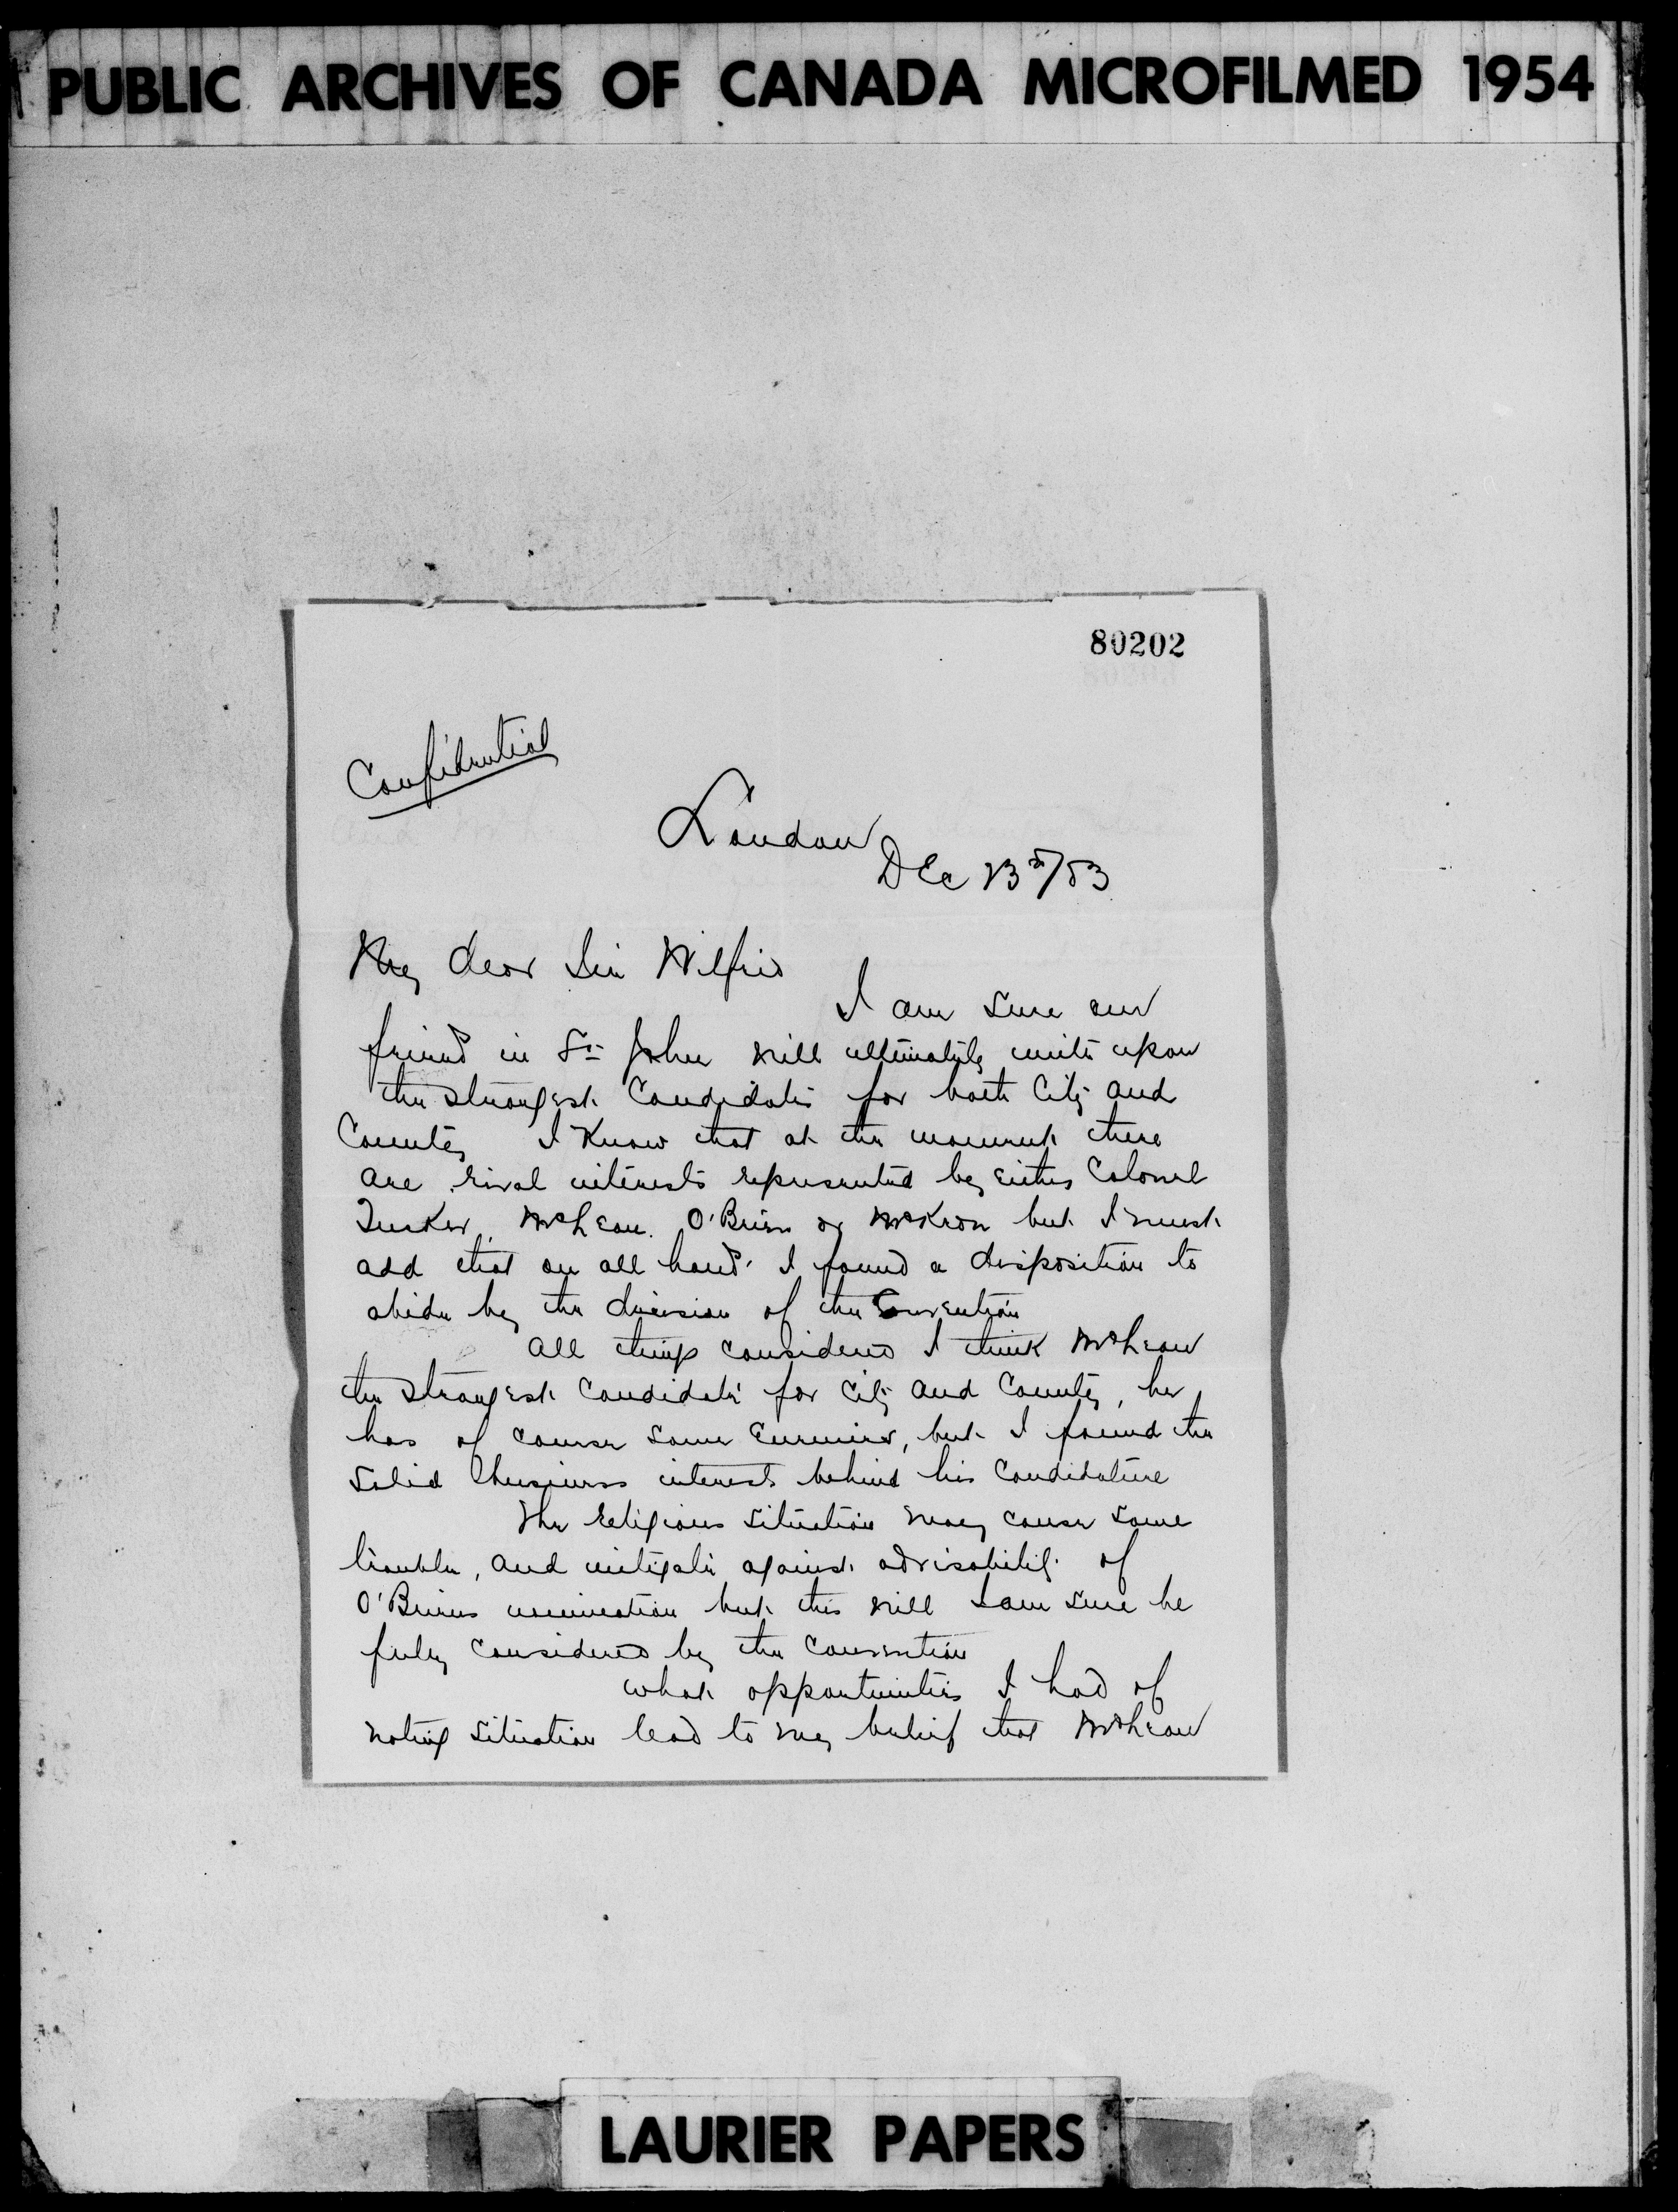 PUBLIC ARCHIVES OF CANADA MICROFILMED 1954
80202
Confidential
London
Dec 23rd/03
My dear Sir Wilfrid
I am sure our
friends in St. John will ultimately unite upon
the strongest Candidates for both City and
County I Know that at the moment there
are rival interests represented by either Colonel
Tucker, McLean. O'Brien or McKeon but I must
add that on all hands I found a disposition to
abide by the decision of the Convention
All things considered I think McLean
the strongest Candidate for City and County, he
has of course some Enemies, but I found the
solid Business interests behind his Candidature
The religious situation may cause some
trouble, and mitigate against advisability of
O'Briens nomination but this will I am sure be
fully considered by the Convention
What opportunities I had of
noting situation lead to my belief that McLean
LAURIER PAPERS